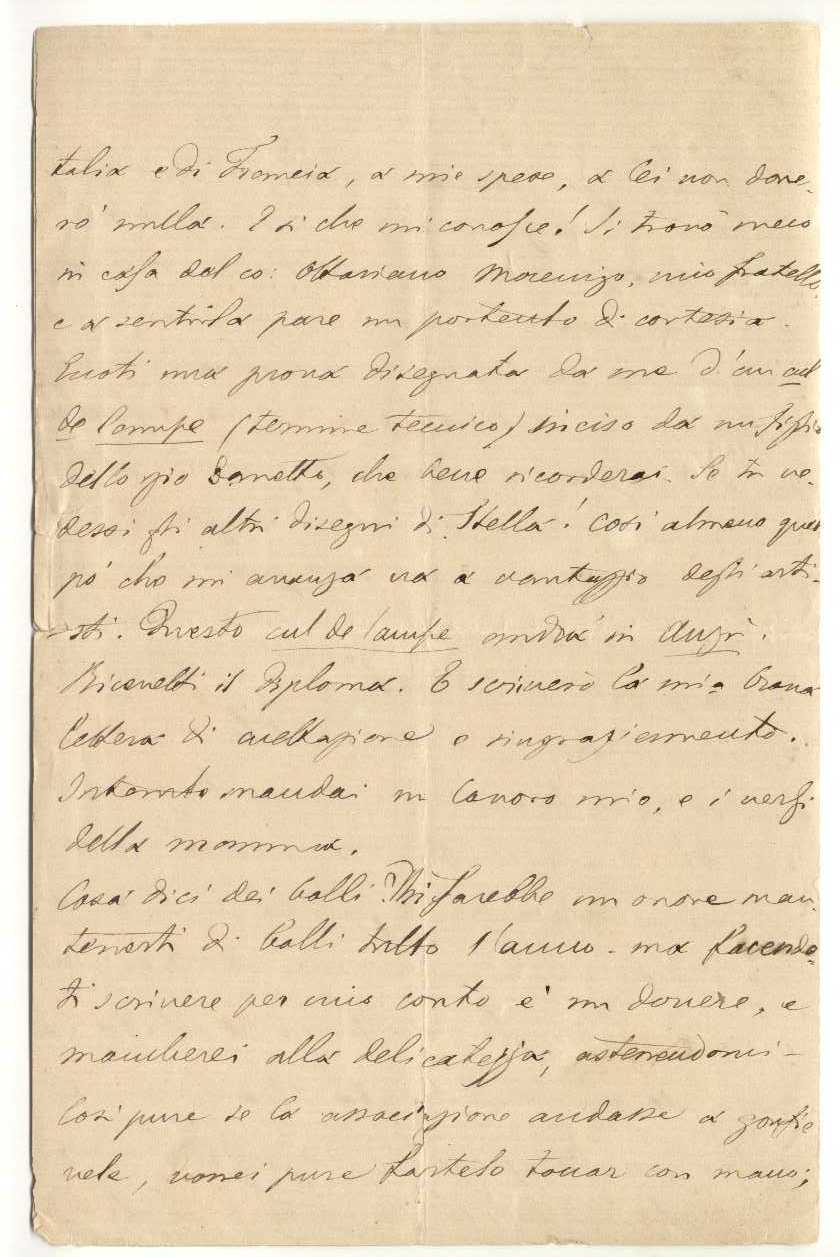 talia e di Francia, a mie spese, a lei non done-
rò nulla. E sì che mi conosce! Si trovò meco
in casa del co: Ottaviano Mocenigo, mio fratello,
e a sentirla pare un portento di cortesia.
Eccoti una prova disegnata da me d'un cul
de lampe (termine tecnico) inciso da un figlio
dello zio Zanetto, che bene ricorderai. Se tu ve-
dessi gli altri disegni di Stella! Così almeno quel
pò che mi avanza va a vantaggio degli arti-
sti. Questo cul de lampe andrà in
Ricevetti il Diploma. E scriverò la mia brava
lettera di accettazione e ringraziamento.
Intanto mandai un lavoro mio, e i versi
della mamma.
Cosa dici dei bolli? Mi farebbe un onore man-
tenerti di bolli tutto l'anno - ma facendo-
ti scrivere per mio conto è un dovere, e
mancherei alla delicatezza, astenendomi -
Così pure se la associazione andasse a gonfie
vele, vorrei pure fartelo toccar con mano;